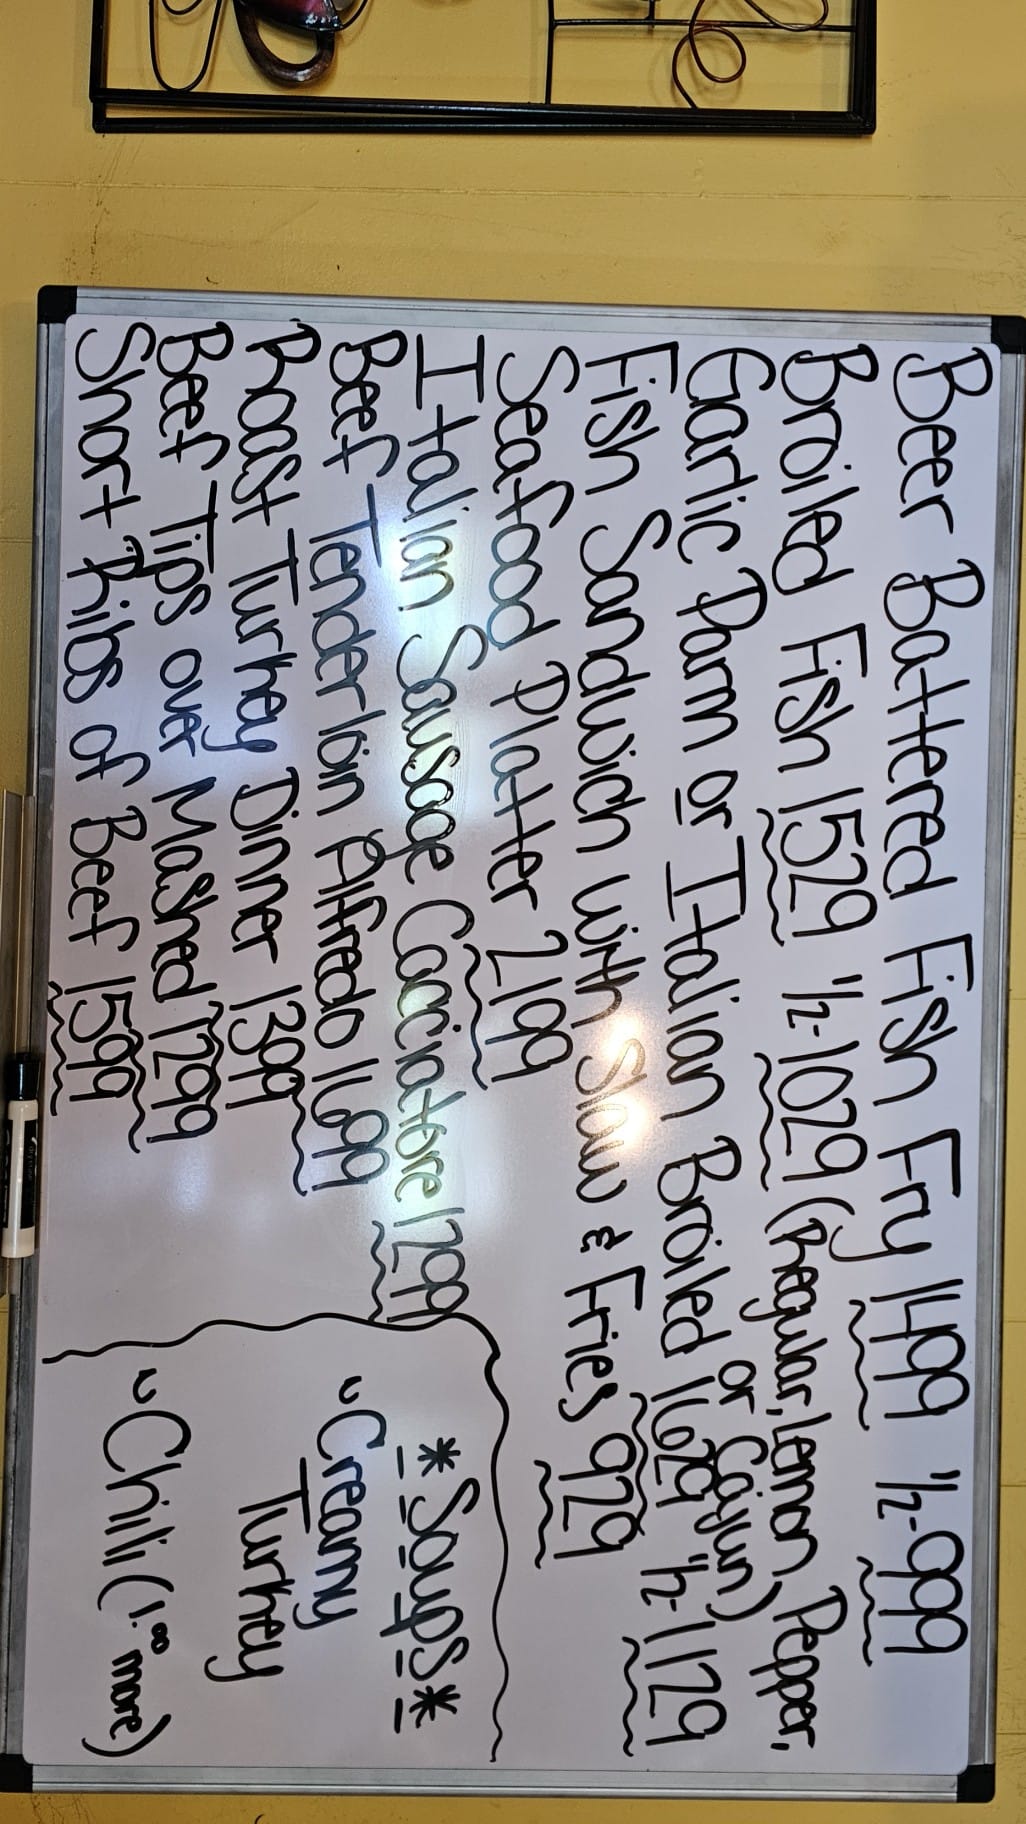 Beer Battered Fish Fry 1499 1/2-999
Broiled Fish 1529 1/2-1029 (Regular, Lemon Pepper,
or Cajun)
Garlic Parm or Italian Broiled 1629 1/2-1129
Fish Sandwich with Slaw & Fries 929
Seafood Platter 2199
Italian Sausage Cacciatore 1299
Beef Tenderloin Alfredo 1699
Roast Turkey Dinner 1399
Beef Tips over Mashed 1299
Short Ribs of Beef 1599
*Soups*
Creamy
Turkey
Chili (1.00 more)